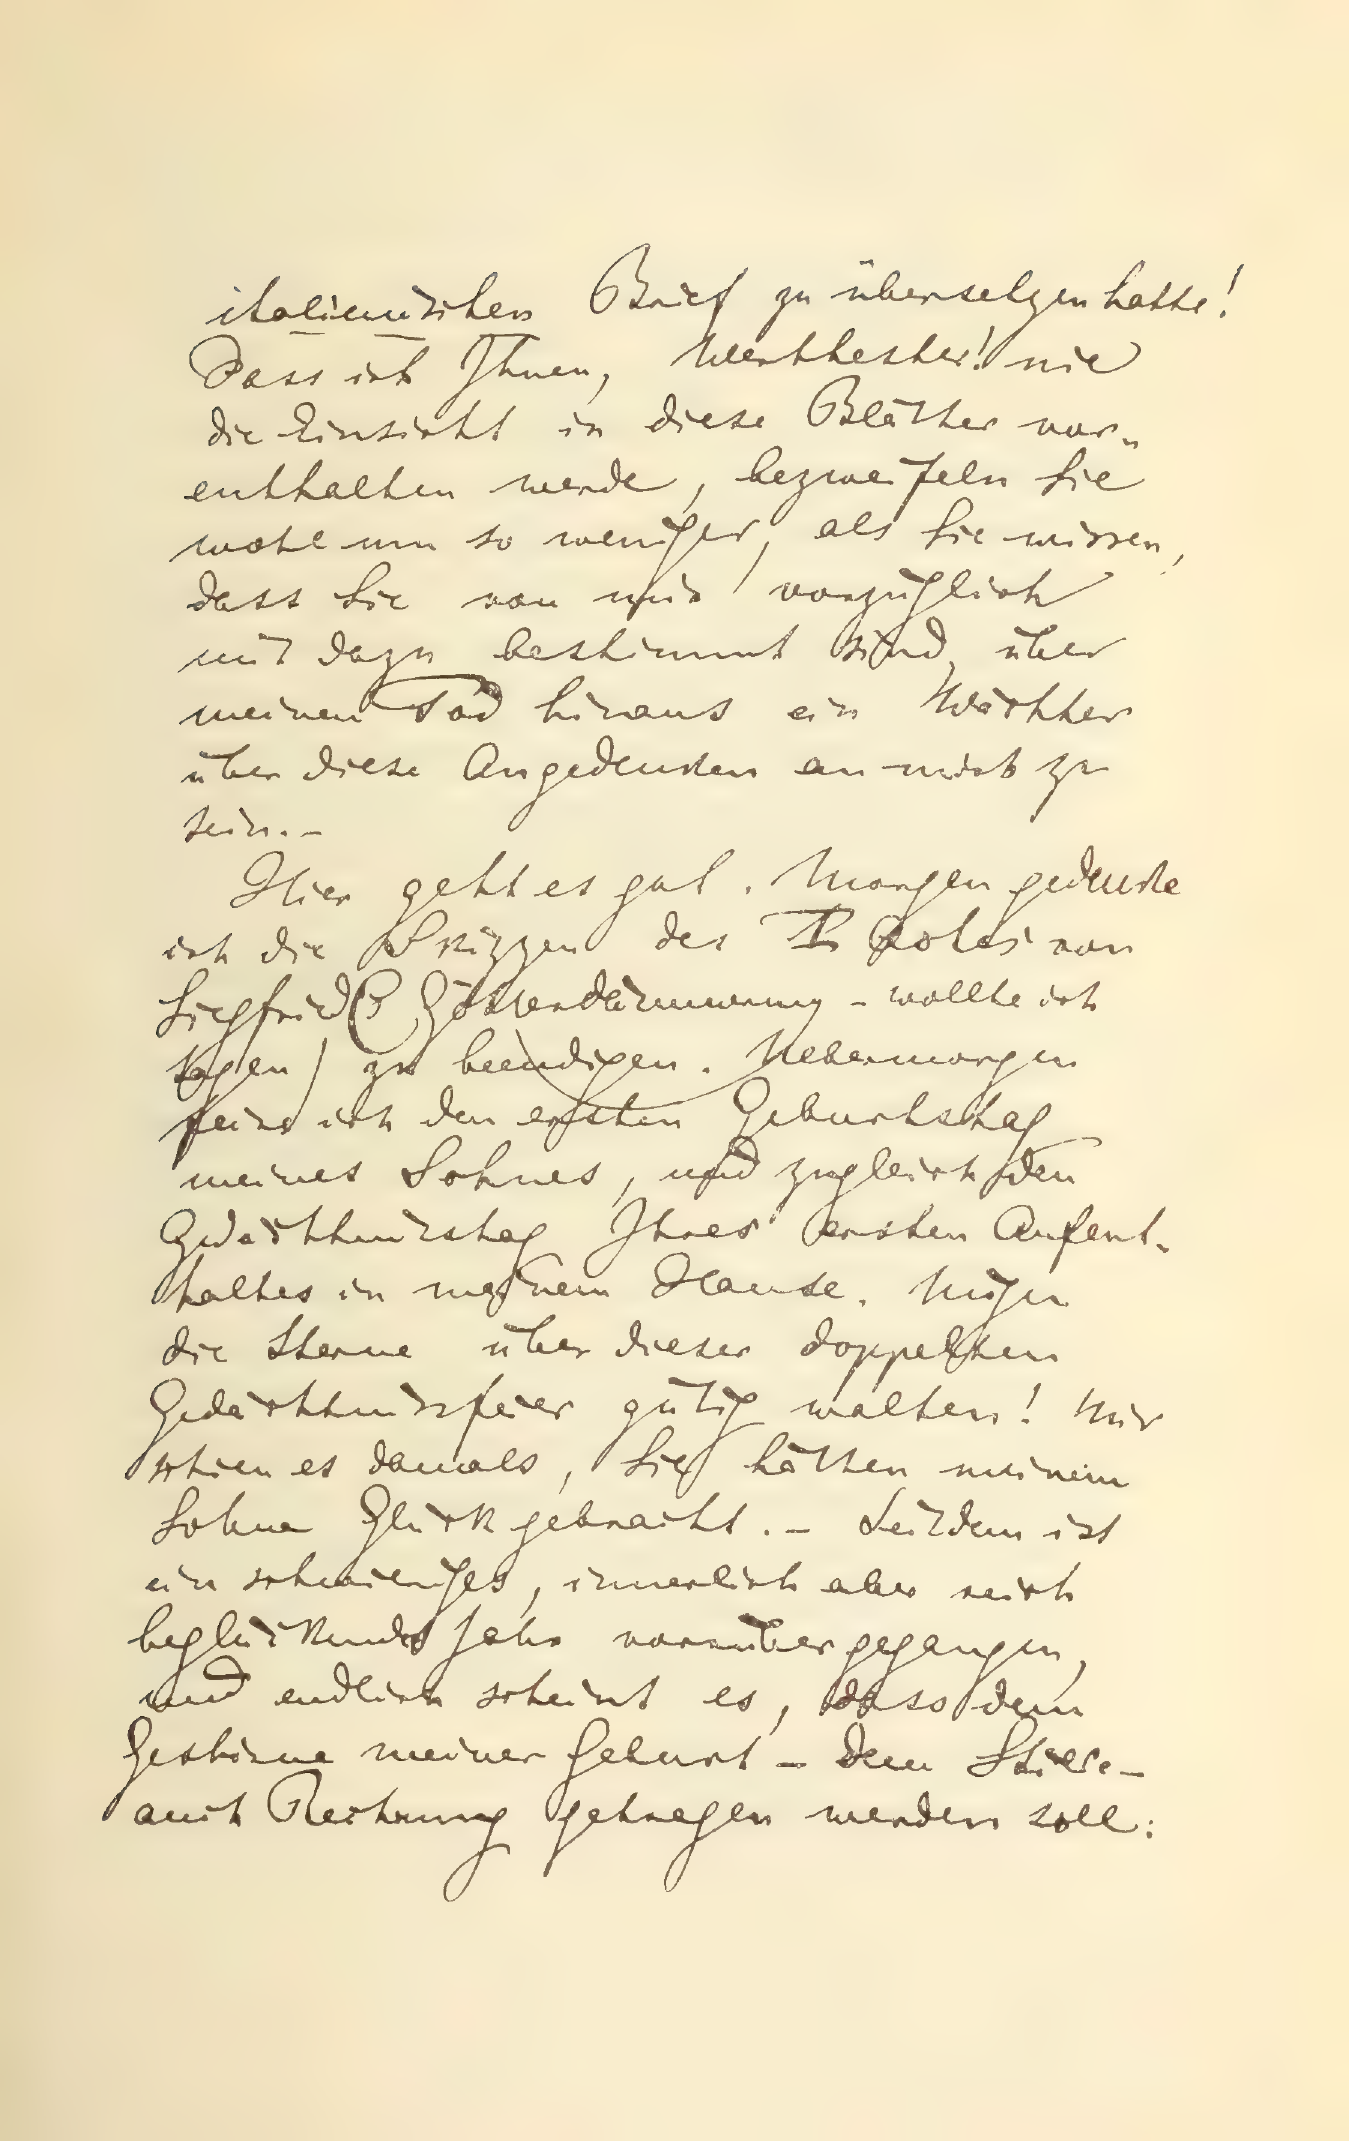 italienischen Brief zu übersetzen hatte!
Dass ich Ihnen, Werthester! nie
die Einsicht in diese Blätter vor-
enthalten werde, bezweifeln Sie
wohl um so weniger, als Sie wissen,
dass Sie von mir vorzüglich
mit dazu bestimmt sind, über
meinen Tod hinaus ein Wächter
über diese Angedenken an mich zu
sein.—
Hier geht es gut. Morgen gedenke
ich die Skizzen des I Actes von
Siegfried (Götterdämmerung – wollte ich
sagen) zu beendigen. Uebermorgen
feire ich den ersten Geburtstag
meines Sohnes, und zugleich den
Gedächtnisstag Ihres ersten Aufent-
haltes in meinem Hause. Mögen
die Sterne über dieser doppelten
Gedächtnissfeier gütig walten! Mir
schien es damals, Sie hätten meinem
Sohne Glück gebracht.— Seitdem ist
ein schwieriges, innerlich aber reich
beglückendes Jahr vorübergegangen,
und endlich scheint es, dass dem
Gestirne meiner Geburt – dem Stille –
auch Rechnung getragen werden soll: